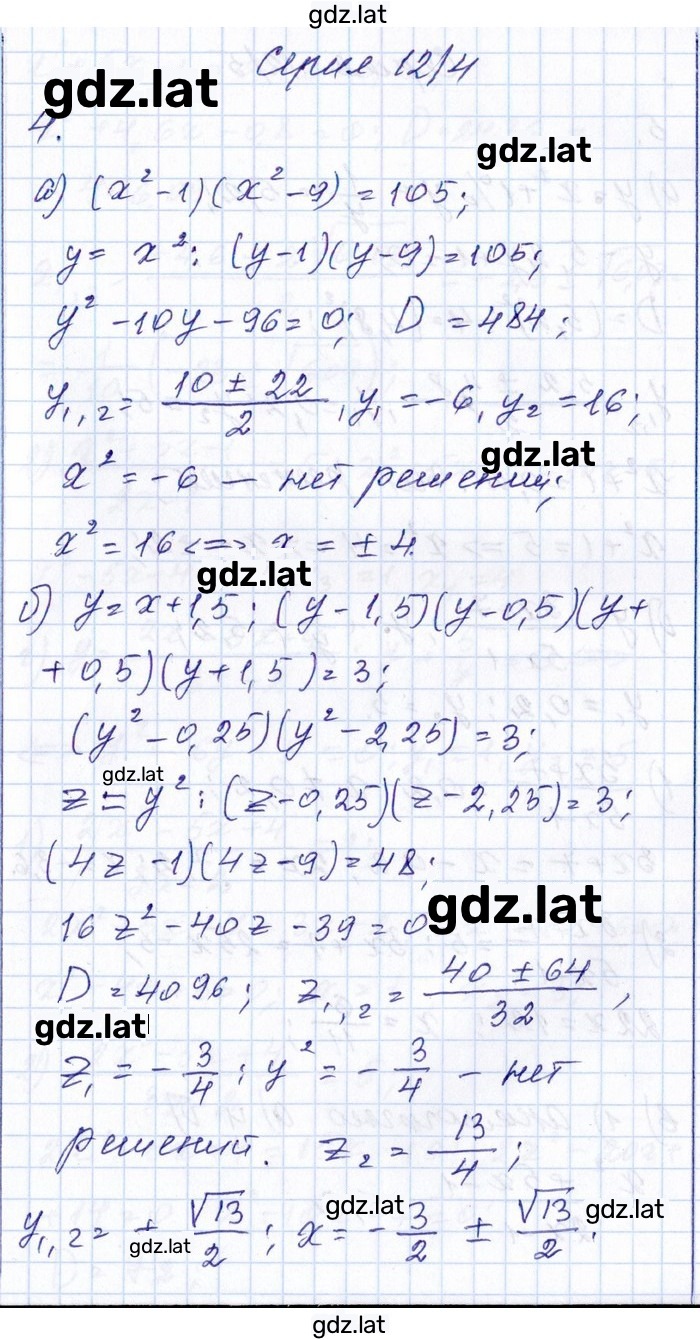 gdz.lat
Серия 12/4
gdz.lat
4.
gdz.lat
а) (x² - 1)(x² - 9) = 105;
y = x²: (y - 1)(y - 9) = 105;
y² - 10y - 96 = 0; D = 484;
y₁,₂ = (10 ± 22)/2, y₁ = -6, y₂ = 16;
gdz.lat
x² = -6 — нет решений;
x² = 16 <=> x = ± 4.
gdz.lat
б) y = x + 1,5; (y - 1,5)(y - 0,5)(y +
+ 0,5)(y + 1,5) = 3;
(y² - 0,25)(y² - 2,25) = 3;
gdz.lat
z = y²: (z - 0,25)(z - 2,25) = 3;
(4z - 1)(4z - 9) = 48;
gdz.lat
16z² - 40z - 39 = 0
D = 4096; z₁,₂ = (40 ± 64)/32,
gdz.lat
z₁ = -3/4; y² = -3/4 - нет
решений. z₂ = 13/4;
gdz.lat
y₁,₂ = ± √13/2; x = -3/2 ± √13/2.
gdz.lat
gdz.lat
gdz.lat